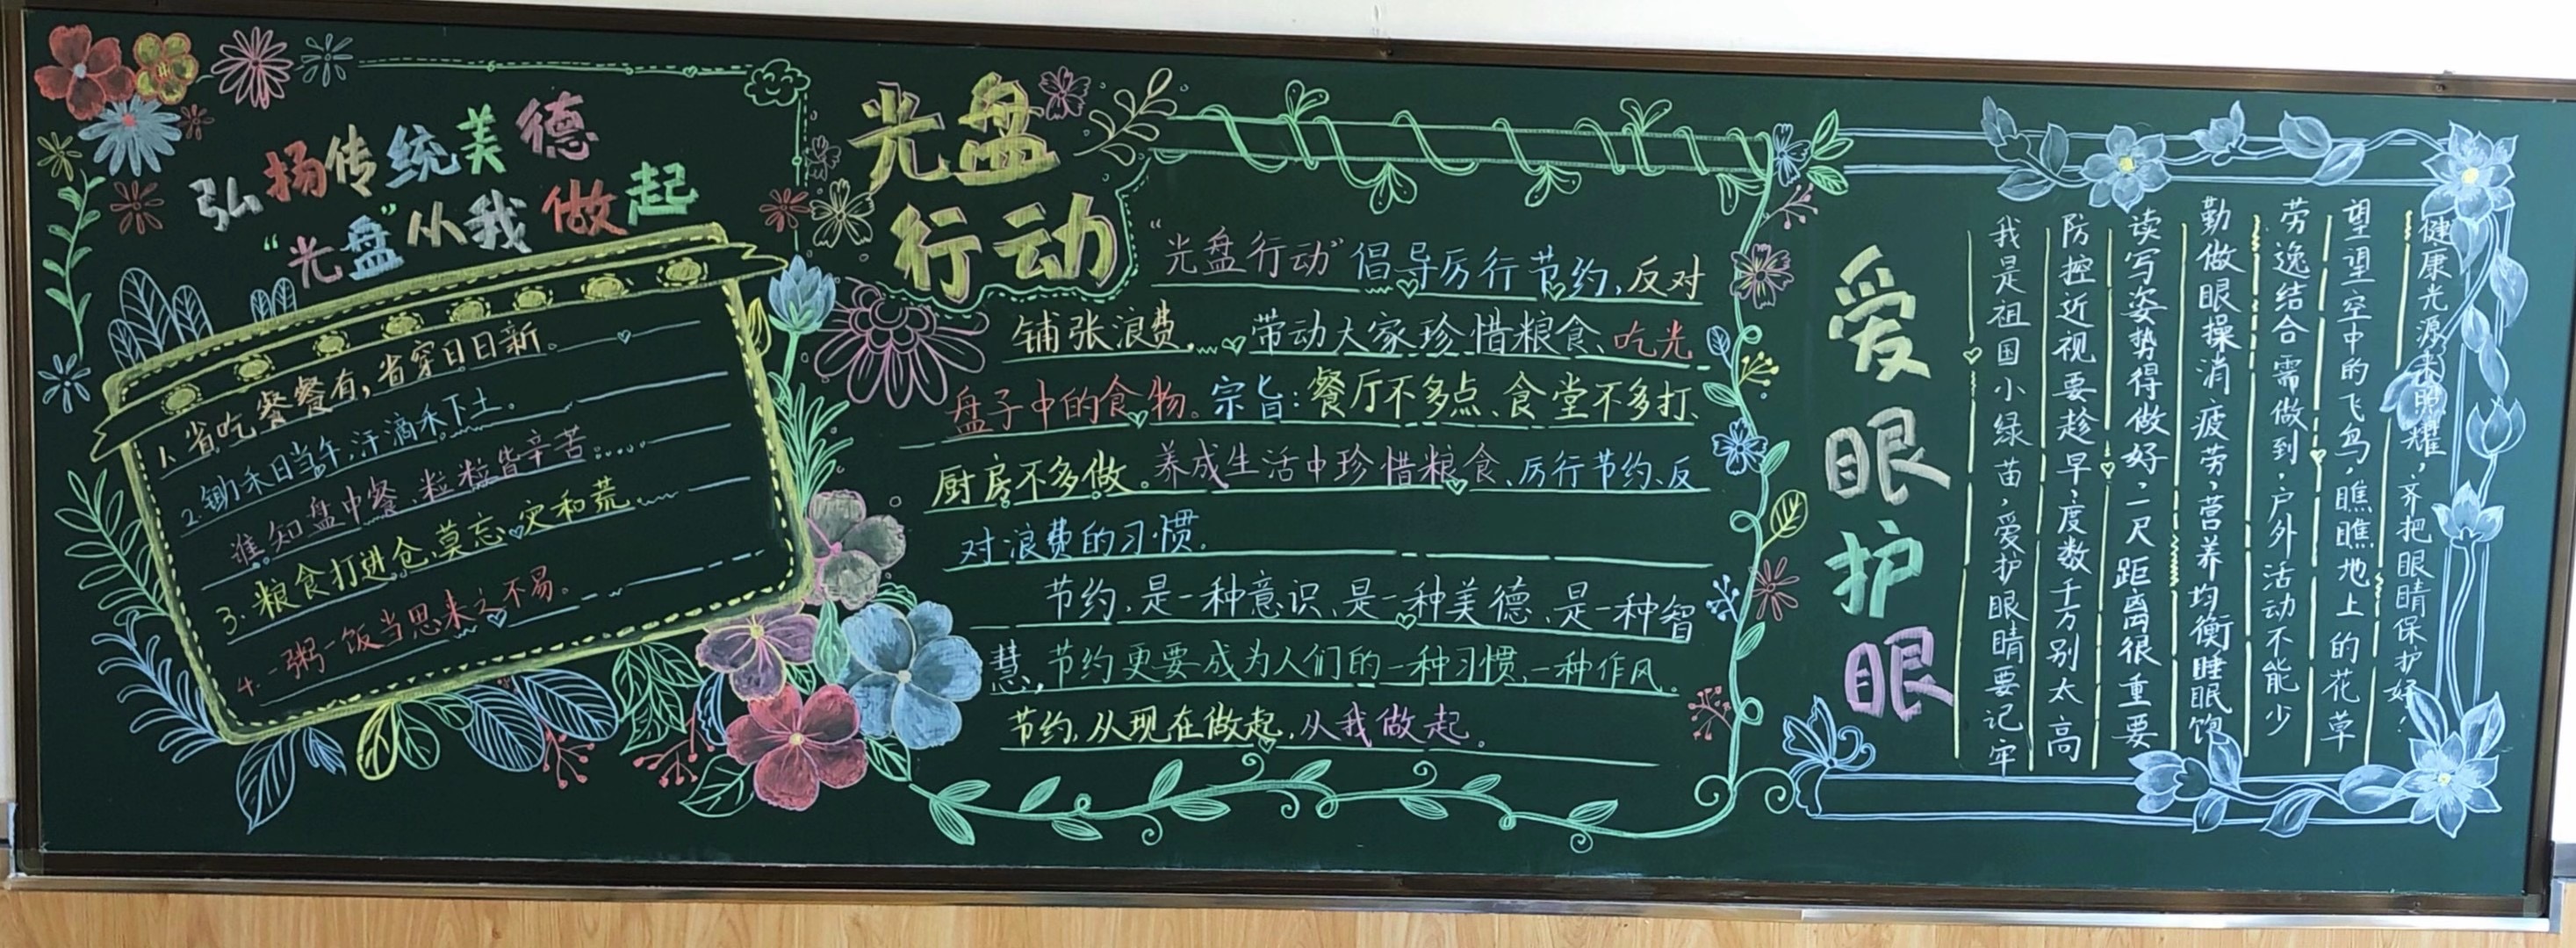 弘扬传统美德
“光盘”从我做起
1、省吃餐餐有，省穿日日新。
2.锄禾日当午，汗滴禾下土。
谁知盘中餐，粒粒皆辛苦。
3.粮食打进仓，莫忘灾和荒
4.一粥一饭当思来之不易。
光盘
行动
“光盘行动”倡导厉行节约，反对
铺张浪费，带动大家珍惜粮食、吃光
盘子中的食物。宗旨：餐厅不多点、食堂不多打、
厨房不多做。养成生活中珍惜粮食、厉行节约、反
对浪费的习惯。
节约，是一种意识，是一种美德，是一种智
慧，节约更要成为人们的一种习惯，一种作风。
节约，从现在做起，从我做起。
爱眼护眼
我是祖国小绿苗，爱护眼睛要记牢
防控近视要趁早，度数千万别太高
读写姿势得做好，一尺距离很重要
勤做眼操消疲劳，营养均衡睡眠饱
劳逸结合需做到，户外活动不能少
望望空中的飞鸟，瞧瞧地上的花草
健康光源来照耀，齐把眼睛保护好！